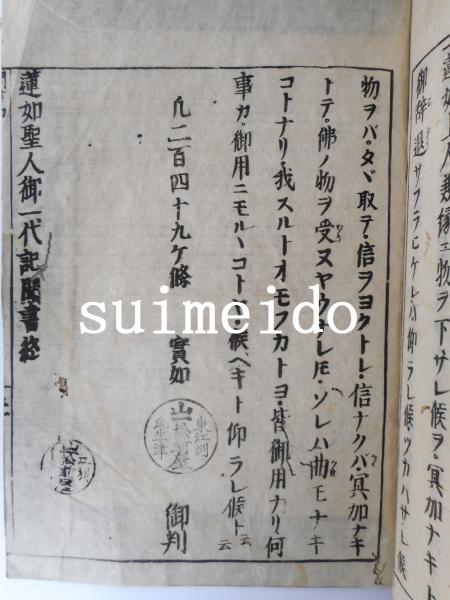 蓮如上人無縁ニ物ヲ下サレ候ヲ・冥加ナキト
御辞退サフラヒケレバ仰ラレ候ツカハサレ候
物ヲバ・タヾ取テ・信ヲヨクトレ・信ナクバ冥加ナキ
トテ・佛ノ物ヲ受ヌヤウナレ𪜈・ソレハ曲モナキ
コトナリ・我スルトオモフカトヨ・皆御用ナリ何
事カ・御用ニモルヽコトヤ候ヘキト仰ラレ候ト云云
凡二百四十九ケ條
實如 御判
蓮如聖人御一代記聞書終
東江州
山
此生津
suimeido